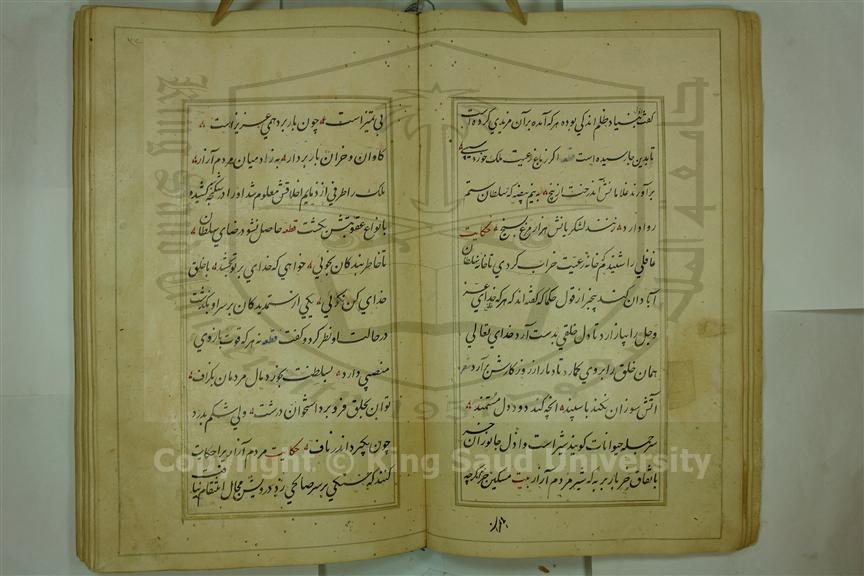 گفت بنیاد ظلم اندکی بوده هرکه آمد بر آن مزیدی کرده است
تا بدین جا رسیده است قطعه اگر ز باغ رعیت ملک خورد سیبی
برآورند غلامانش آن درخت از بیخ به نیم بیضه که سلطان ستم
روا دارد زنند لشکریانش هزار مرغ بسیخ حکایت
غافلی را شنیدم که خانه رعیت خراب کردی تا خانه سلطان
آبادان کند بیخبر از قول حکما که گفته اند که هرکه خدای عز
وجل را بیازارد تا دل خلقی بدست آرد خدای تعالی
همان خلق را بروی گمارد تا دمار از روزگارش برآرد
آتش سوزان نکند با سپند آنچه کند دود دل مستمند
سر جمله حیوانات گویند شیر است و اذل جانوران خر
باتفاق خر باربر به که شیر مردم آزار بیت مسکین خر اگرچه
بی تمیز است چون بار برد همی عزیز است
گاوان و خران باربردار به ز آدمیان مردم آزار
ملک را طرفی از ذمایم اخلاقش معلوم شد او را در شکنجه کشیده
بانواع عقوبتش بکشت قطعه حاصل نشود رضای سلطان
تا خاطر بندکان نجوئی خواهی که خدای بر تو بخشد با خلق
خدای کن نکوئی یکی از ستمدیدکان بر سر او بگذشت
در حالت او نظر کرد و گفت قطعه نه هرکه قوت بازوی
منصبی دارد بسلطنت بخورد مال مردمان بگزاف
توان بحلق فرو برد استخوان درشت ولی شکم بدرد
چون بگیرد اندر ناف حکایت مردم آزاری را حکایت
کنند که سنگی بر سر صالحی زد درویش مجال انتقام نیافت
Copyright © King Saud University